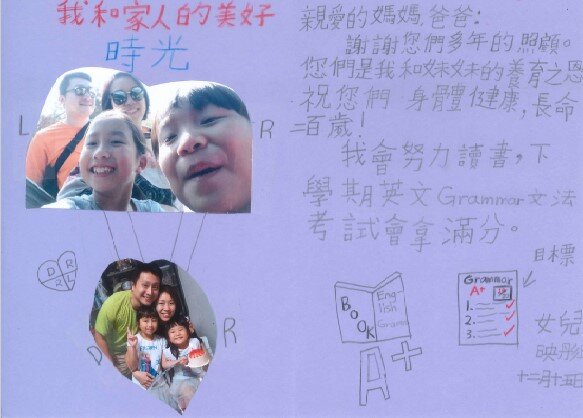 我和家人的美好
時光
L
R
D R
R L
D
R
親愛的媽媽,爸爸:
謝謝您們多年的照顧。
您們是我和妹妹的養育之恩
祝您們 身體健康,長命
二百歲!
我會努力讀書,下
學期英文Grammar文法
考試會拿滿分。
目標
BOOK
Eng
lish
Gramm
A+
Grammar
A+
1.
2.
3.
女兒
映
十二月十五日